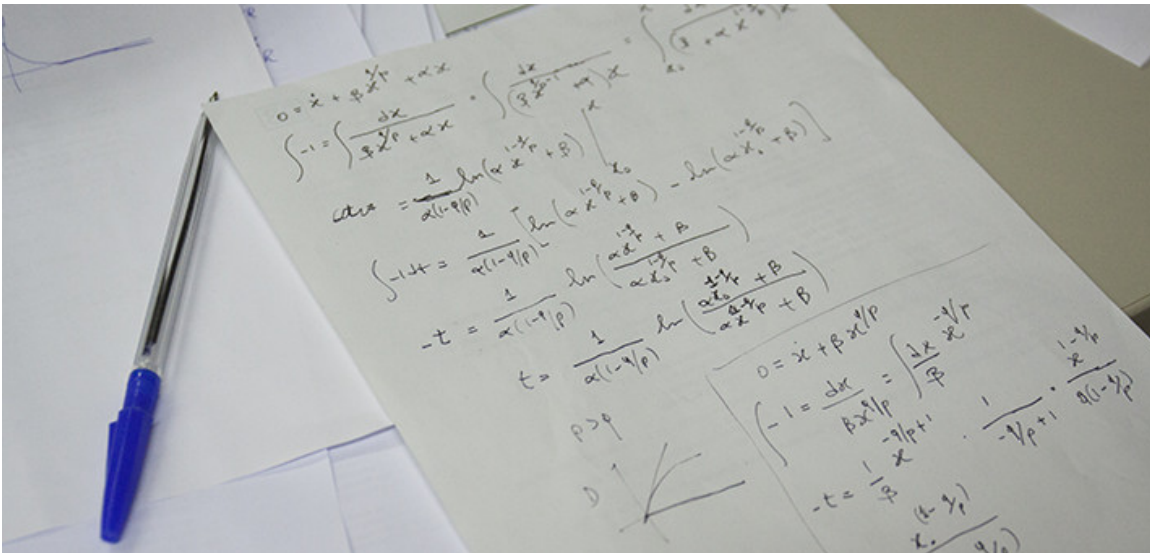 0 = ẋ + βx^{q/p} + αx
∫-1 = ∫ dx / (βx^{q/p} + αx) = ∫ dx / ((βx^{q/p-1} + α)x) =
= 1/(α(1-q/p)) ln(αx^{1-q/p} + β) |_{x₀}^{x}
∫-1dt = 1/(α(1-q/p)) [ln(αx^{1-q/p} + β) - ln(αx₀^{1-q/p} + β)]
-t = 1/(α(1-q/p)) ln((αx^{1-q/p} + β)/(αx₀^{1-q/p} + β))
t = 1/(α(1-q/p)) ln((αx₀^{1-q/p} + β)/(αx^{1-q/p} + β))
p>q
D
0 = ẋ + βx^{q/p}
∫-1 = dx/(βx^{q/p}) = ∫ dx/β x^{-q/p}
-t = 1/β x^{-q/p+1} · 1/(-q/p+1) ·